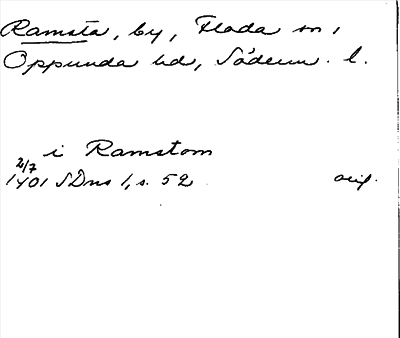 Ramsta, by, Floda sn,
Oppunda hd, Söderm. l.
i Ramstom
2/7
1401 SDns 1, s. 52 orig.